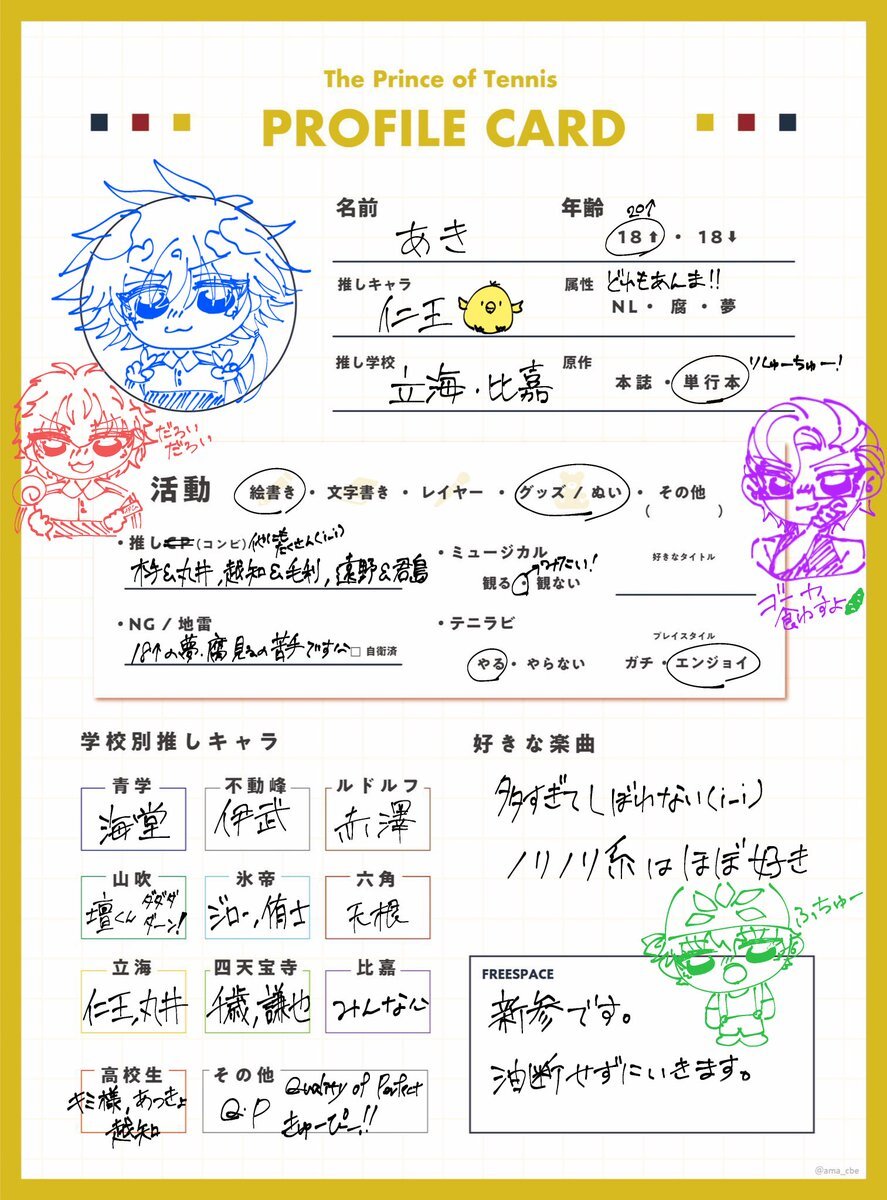 The Prince of Tennis
PROFILE CARD
名前
あき
年齢
20↑
18⬆・18⬇
推しキャラ
仁王
属性
どれもあんま!!
NL・腐・夢
推し学校
立海・比嘉
原作
本誌・単行本
りしゅーちゅー!
だるい
だるい
活動
絵書き・文字書き・レイヤー・グッズ / ぬい・その他
( )
・推しCP(コンビ)
他にも
たくさん(i-i)
木手&丸井,越知&毛利,遠野&君島
・ミュージカル
みたい!
観る・観ない
好きなタイトル
・NG / 地雷
18↑の夢・腐見るの苦手です
□自衛済
・テニラビ
やる・やらない
プレイスタイル
ガチ・エンジョイ
ゴーヤ
食わすよ
学校別推しキャラ
青学
海堂
不動峰
伊武
ルドルフ
赤澤
山吹
壇くん
ダダダ
ダーン!
氷帝
ジロー,侑士
六角
天根
立海
仁王,丸井
四天宝寺
千歳,謙也
比嘉
みんな
高校生
キミ様,あつきょ
越知
その他
Q・P
Quality of Perfect
きゅーぴー!!
好きな楽曲
多すぎてしぼれない(i-i)
ノリノリ系はほぼ好き
ふちゅー
FREESPACE
新参です。
油断せずにいきます。
@ama_cbe